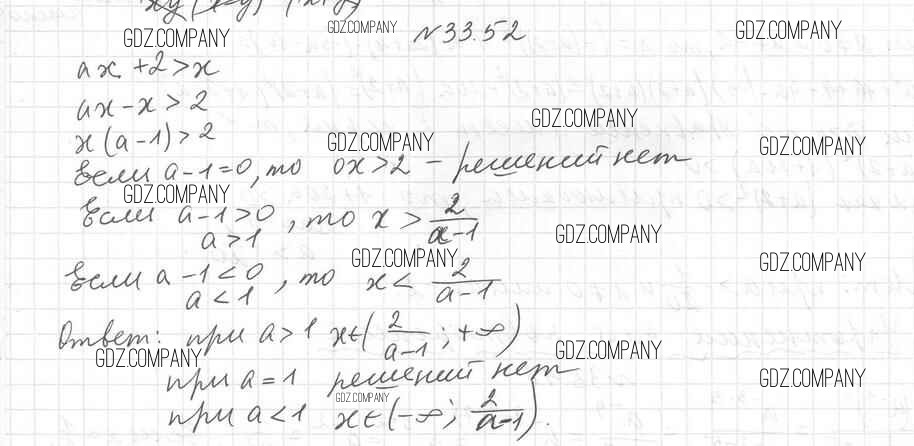 GDZ.COMPANY GDZ.COMPANY №33.52 GDZ.COMPANY
ax +2>x
ax-x>2
GDZ.COMPANY
x(a-1)>2
GDZ.COMPANY GDZ.COMPANY
Если a-1=0, то 0x>2 - решений нет
GDZ.COMPANY
Если a-1>0, то x > 2/(a-1)
a>1
GDZ.COMPANY
GDZ.COMPANY GDZ.COMPANY
Если a-1<0, то x< 2/(a-1)
a<1
Ответ: при a>1 x∈(2/(a-1); +∞)
GDZ.COMPANY GDZ.COMPANY
при a=1 решений нет
GDZ.COMPANY GDZ.COMPANY
при a<1 x∈(-∞; 2/(a-1)).